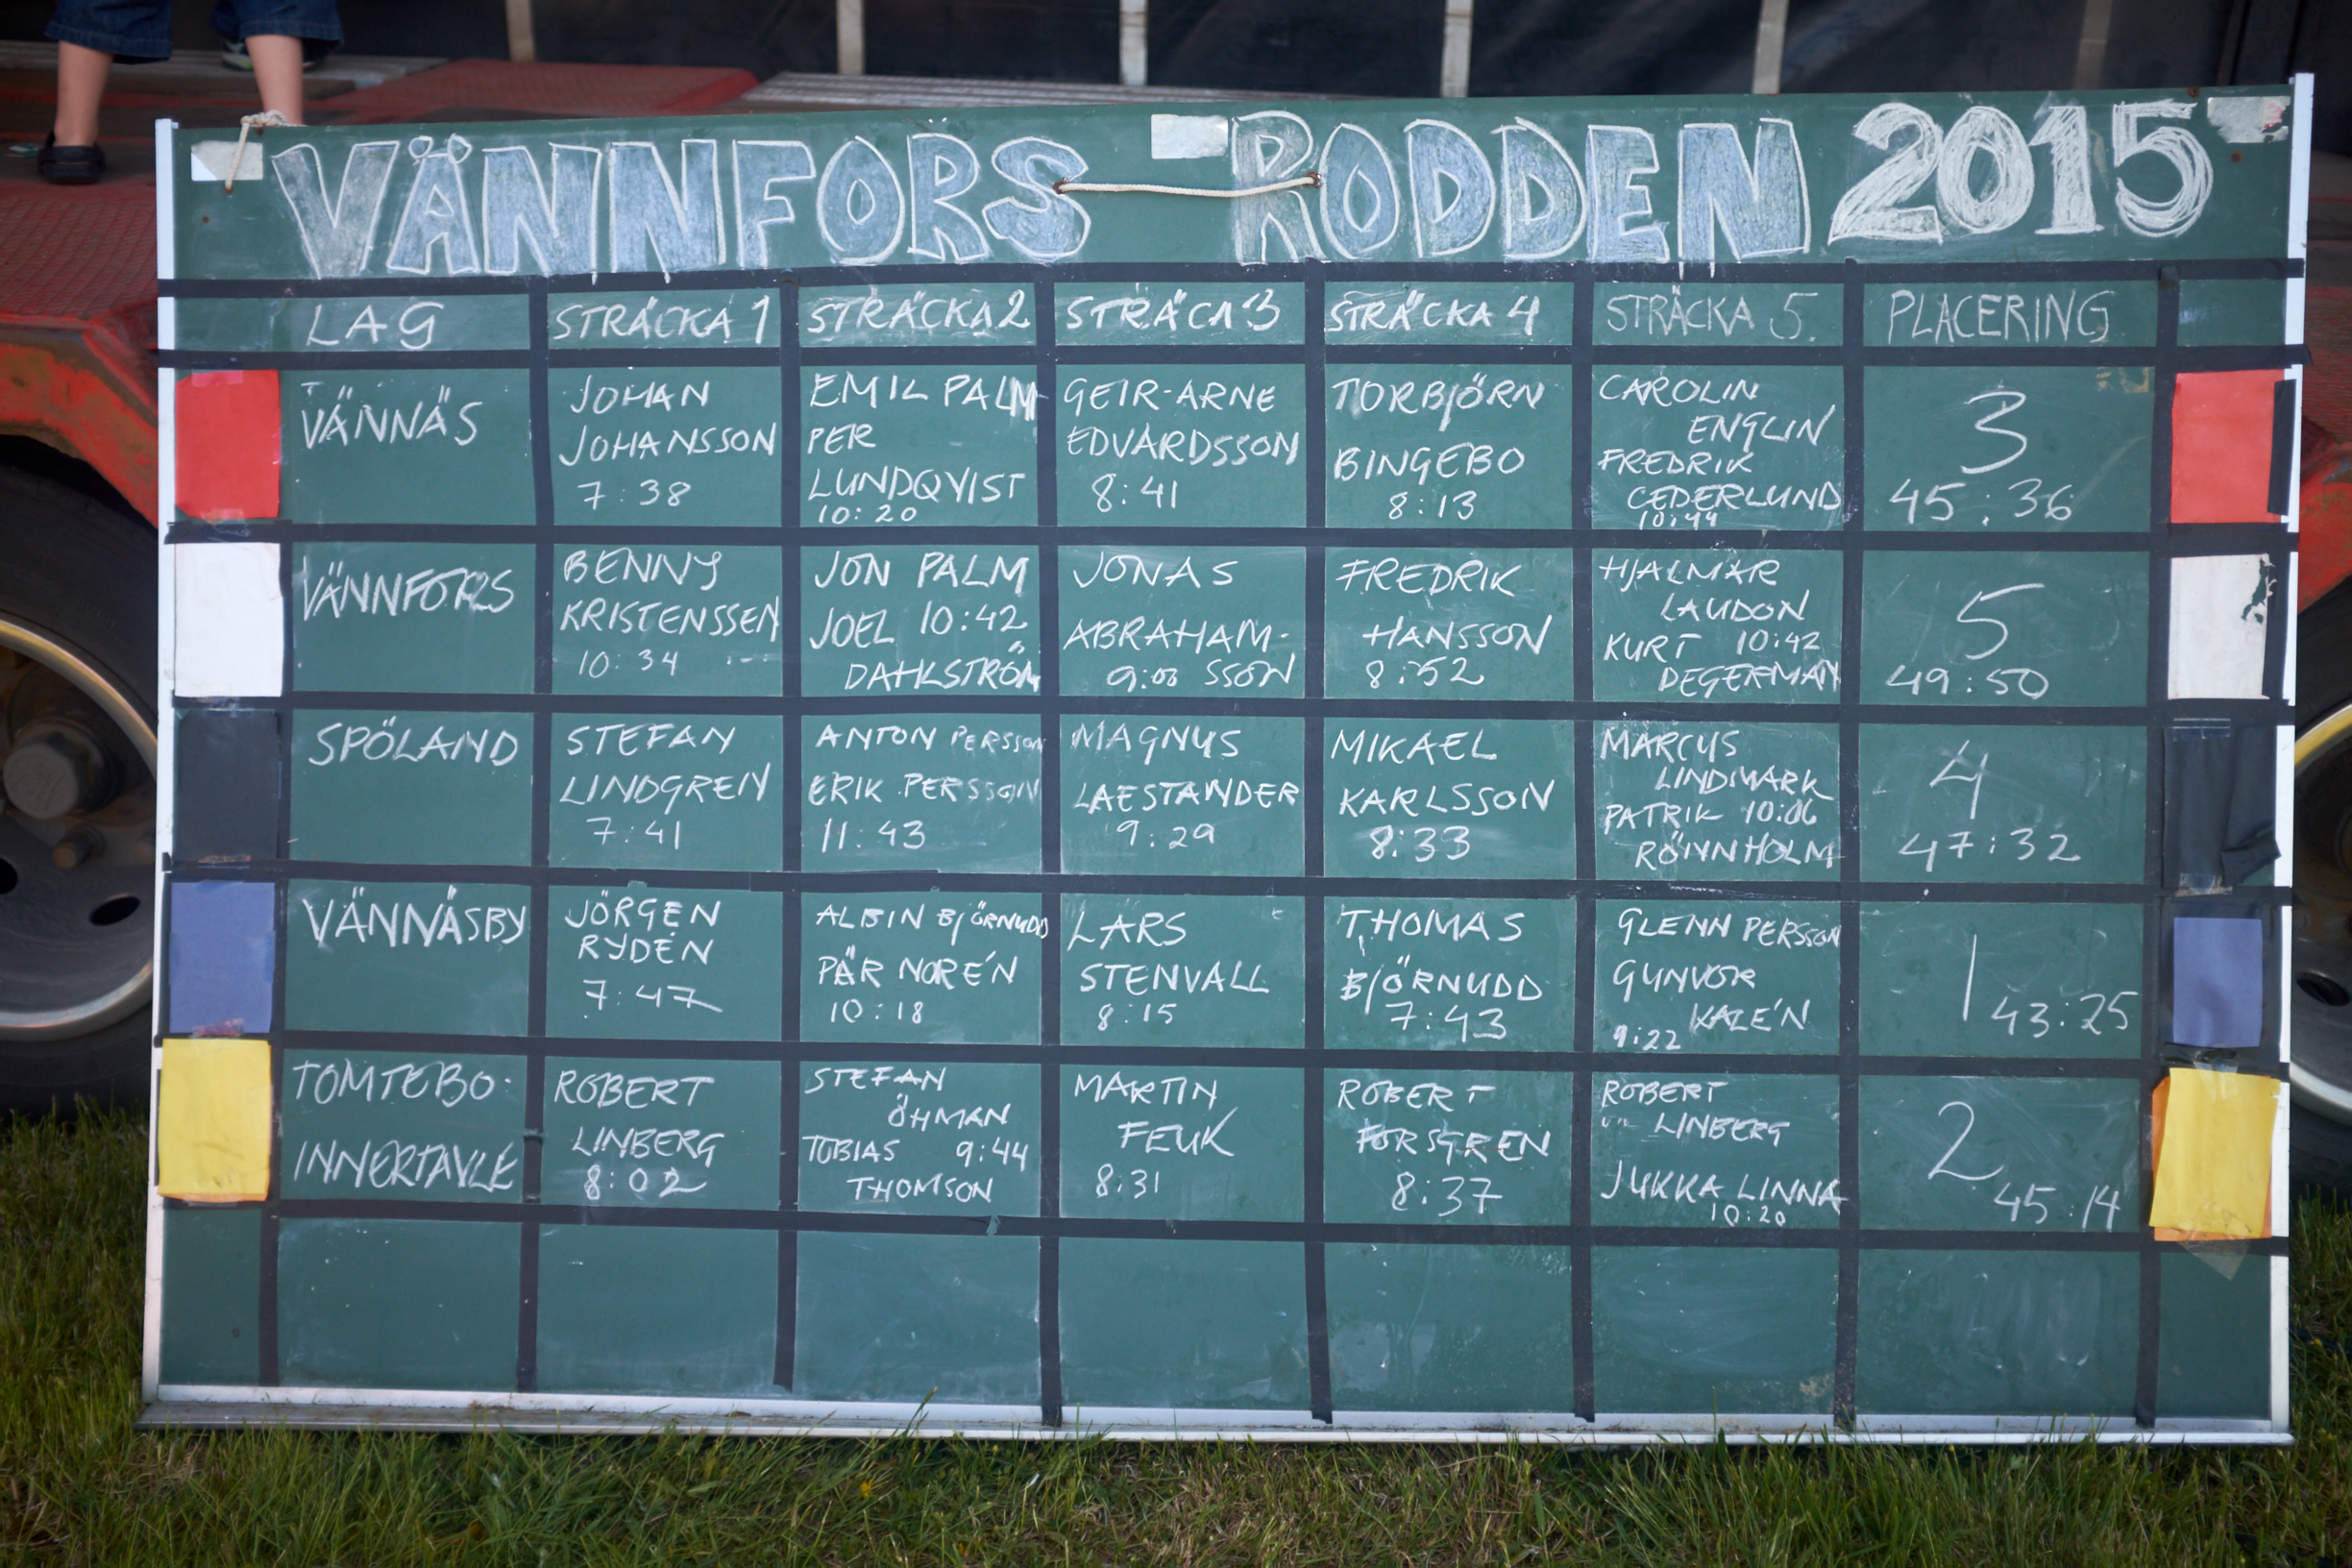 VÄNNFORS RODDEN 2015
LAG STRÄCKA 1 STRÄCKA 2 STRÄCA 3 STRÄCKA 4 STRÄCKA 5. PLACERING
VÄNNÄS
JOHAN
JOHANSSON
7:38
EMIL PALM
PER
LUNDQVIST
10:20
GEIR-ARNE
EDVARDSSON
8:41
TORBJÖRN
BINGEBO
8:13
CAROLIN
ENGLIN
FREDRIK
CEDERLUND
10:44
3
45:36
VÄNNFORS
BENNY
KRISTENSSEN
10:34
JON PALM
JOEL 10:42
DAHLSTRÖM
JONAS
ABRAHAM-
9:00 SSON
FREDRIK
HANSSON
8:52
HJALMAR
LAUDON
KURT 10:42
DEGERMAN
5
49:50
SPÖLAND
STEFAN
LINDGREN
7:41
ANTON PERSSON
ERIK PERSSON
11:43
MAGNUS
LAESTANDER
9:29
MIKAEL
KARLSSON
8:33
MARCUS
LINDMARK
PATRIK 10:06
RÖNNHOLM
4
47:32
VÄNNÄSBY
JÖRGEN
RYDÉN
7:47
ALBIN BJÖRNUDD
PÄR NORÉN
10:18
LARS
STENVALL
8:15
THOMAS
BJÖRNUDD
7:43
GLENN PERSSON
GUNVOR
KALÉN
9:22
1
43:25
TOMTEBO-
INNERTAVLE
ROBERT
LINBERG
8:02
STEFAN
ÖHMAN
TOBIAS 9:44
THOMSON
MARTIN
FEUK
8:31
ROBERT
FORSGREN
8:37
ROBERT
LINBERG
JUKKA LINNA
10:20
2
45:14